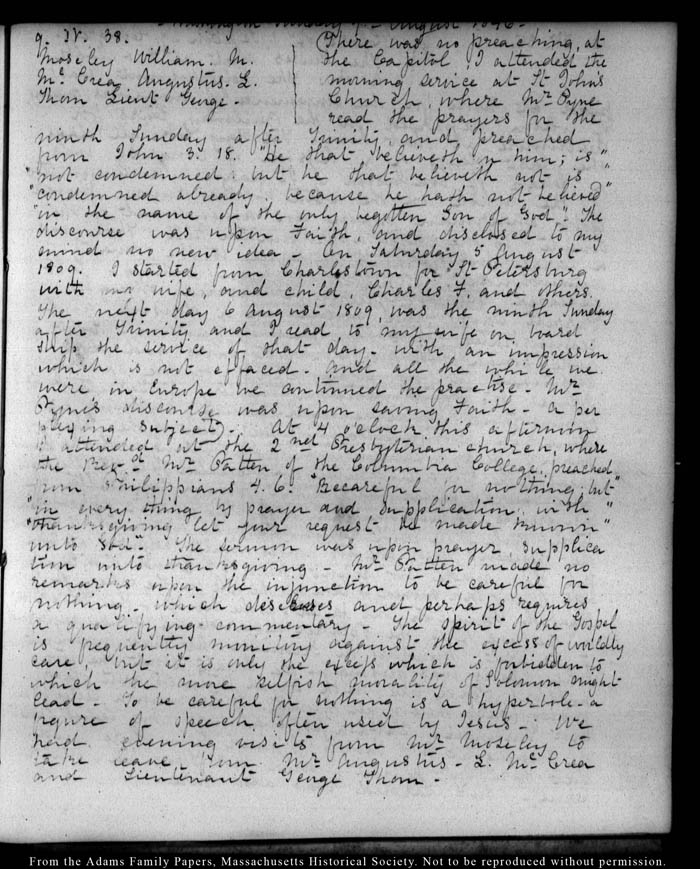 Washington Sunday 9 - August 1846 -
9. IV. 38.
Moseley William. M.
Mc Crea Augustus. L.
Thom Lieut George -
There was no preaching, at
the Capitol, I attended the
morning service at St John's
Church, where Mr Pyne
read the prayers for the
ninth Sunday after Trinity, and preached
from John 3. 18. "He that believeth in him, is"
"not condemned: but he that believeth not is
"condemned already, because he hath not believed"
"in the name of the only begotten Son of God". The
discourse was upon Faith, and disclosed to my
mind no new idea - On Saturday 5 August
1809. I started from Charlestown for St Petersburg
with my wife, and child, Charles F. and others.
The next day 6 August 1809, was the ninth Sunday
after Trinity and I read to my wife on board
ship the service of that day - with an impression
which is not effaced - and all the while we
were in Europe we continued the practise - Mr
Pyne's discourse was upon saving Faith - a per
plexing subject). At 4 o'clock this afternoon
I attended at the 2nd Presbyterian church, where
the Revd Mr Patten of the Columbia College, preached
from Philippians 4. 6. "Be careful for nothing but"
"in every thing by prayer and supplication, with"
"thanksgiving let your request be made known"
unto God". The sermon was upon prayer, supplica
tion unto thanksgiving - Mr Patten made no
remarks upon the injunction to be careful for
nothing - which deserves and perhaps requires
a qualifying commentary - The spirit of the Gospel
is frequently monitory against the excess of worldly
care, but it is only the excess which is forbidden to
which the more selfish morality of Solomon might
lead - To be careful for nothing is a hyperbole - a
figure of speech often used by Jesus - We
had evening visits from Mr Moseley to
take leave, from Mr Augustus - L. Mc Crea
and Lieutenant George Thom -
From the Adams Family Papers, Massachusetts Historical Society. Not to be reproduced without permission.